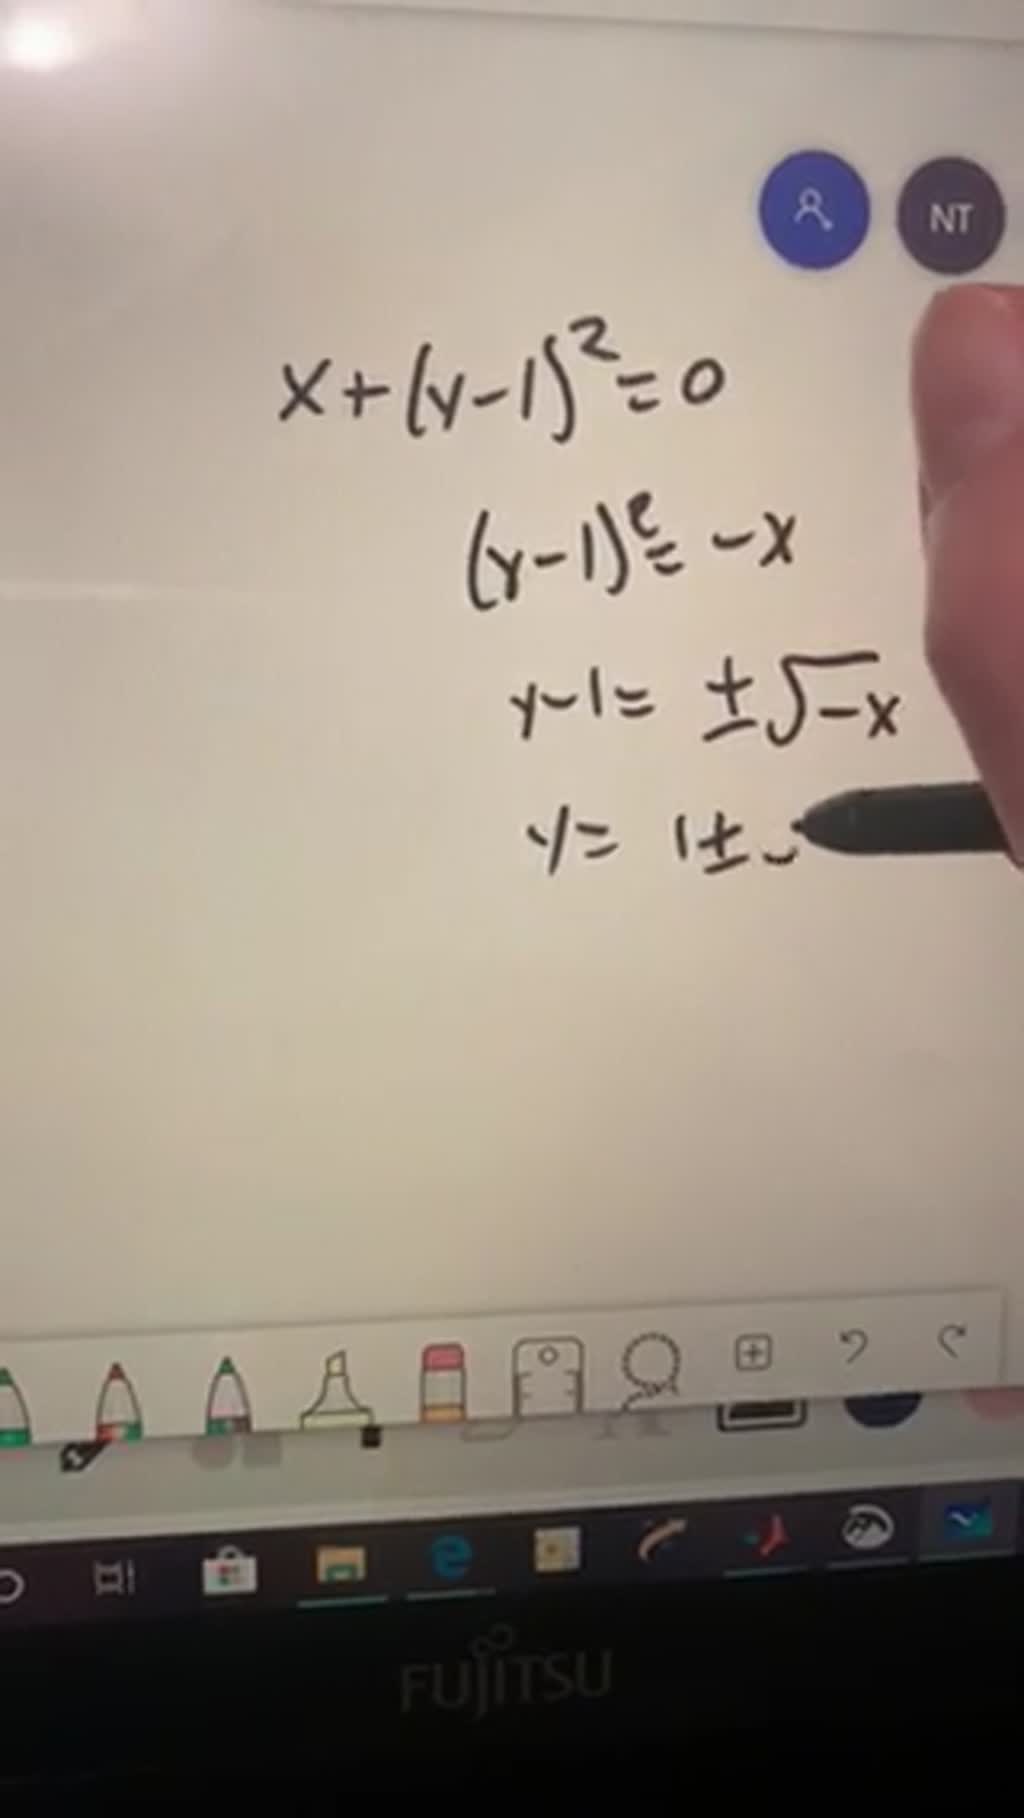 NT
x+(y-1)²=0
(y-1)²=-x
y-1=±√-x
y=1±
FUJITSU